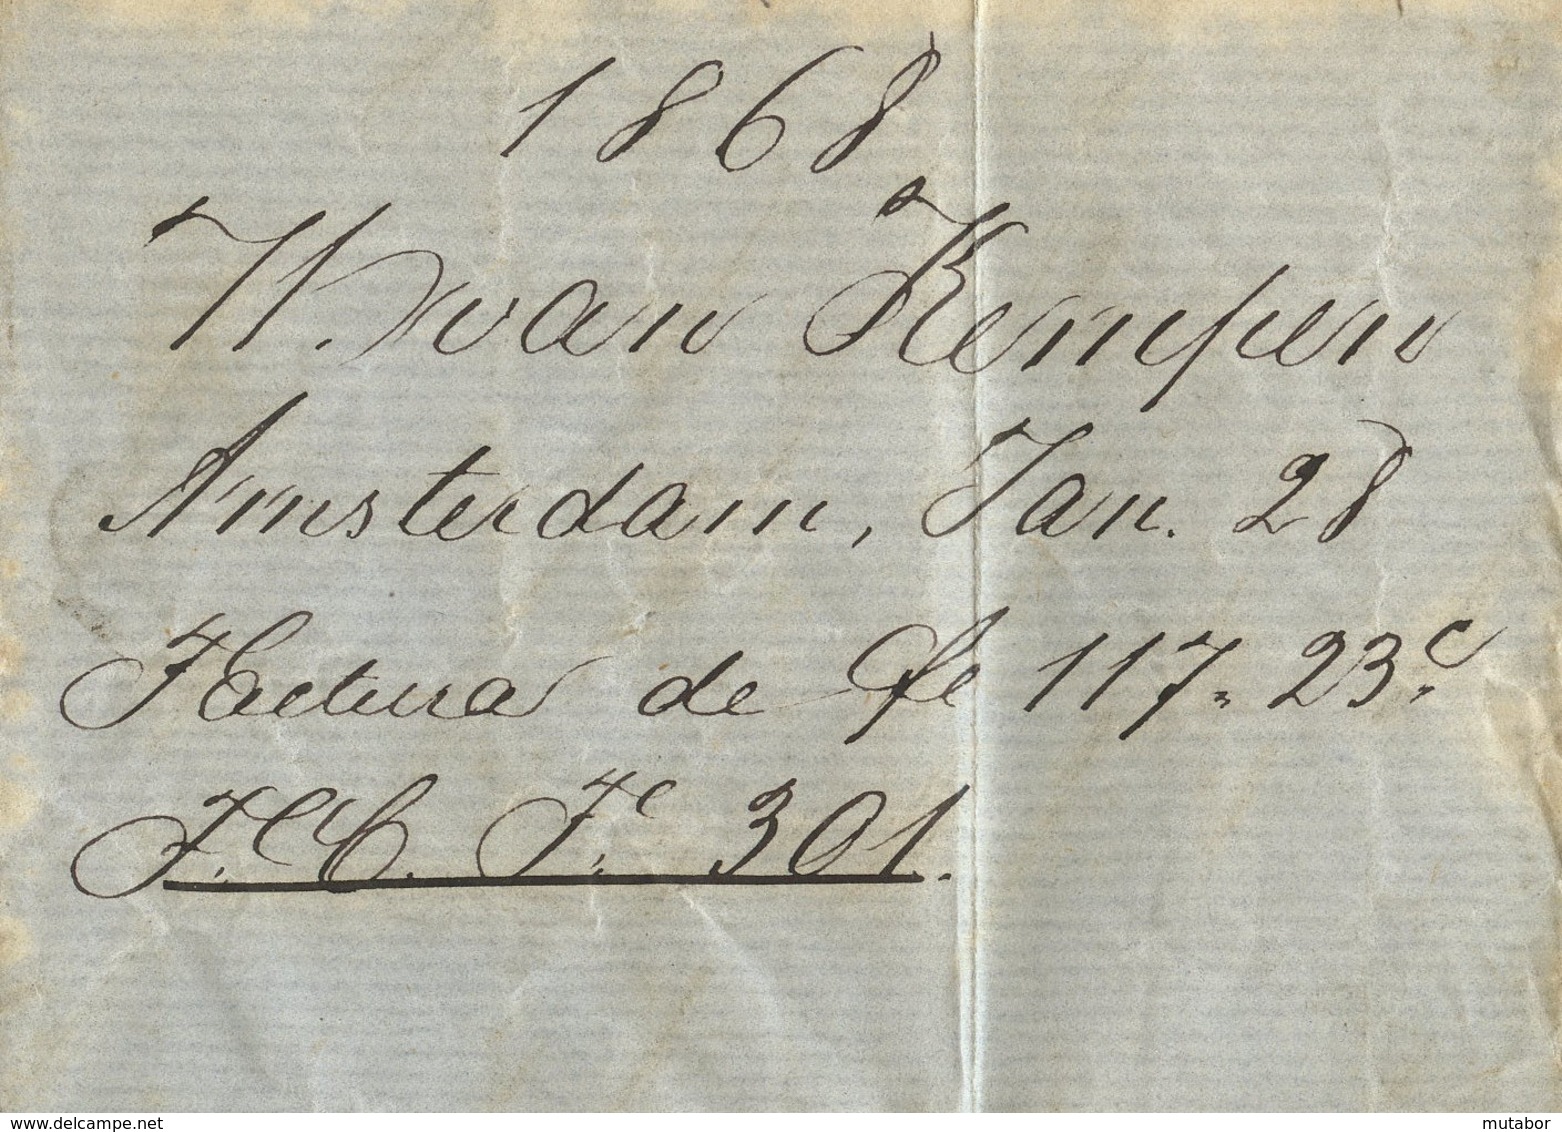 1868
H. van Kempen
Amsterdam, Jan. 28
Factura de fs 117 = 23.c
F.C.C. Fc. 301.
www.delcampe.net
mutabor